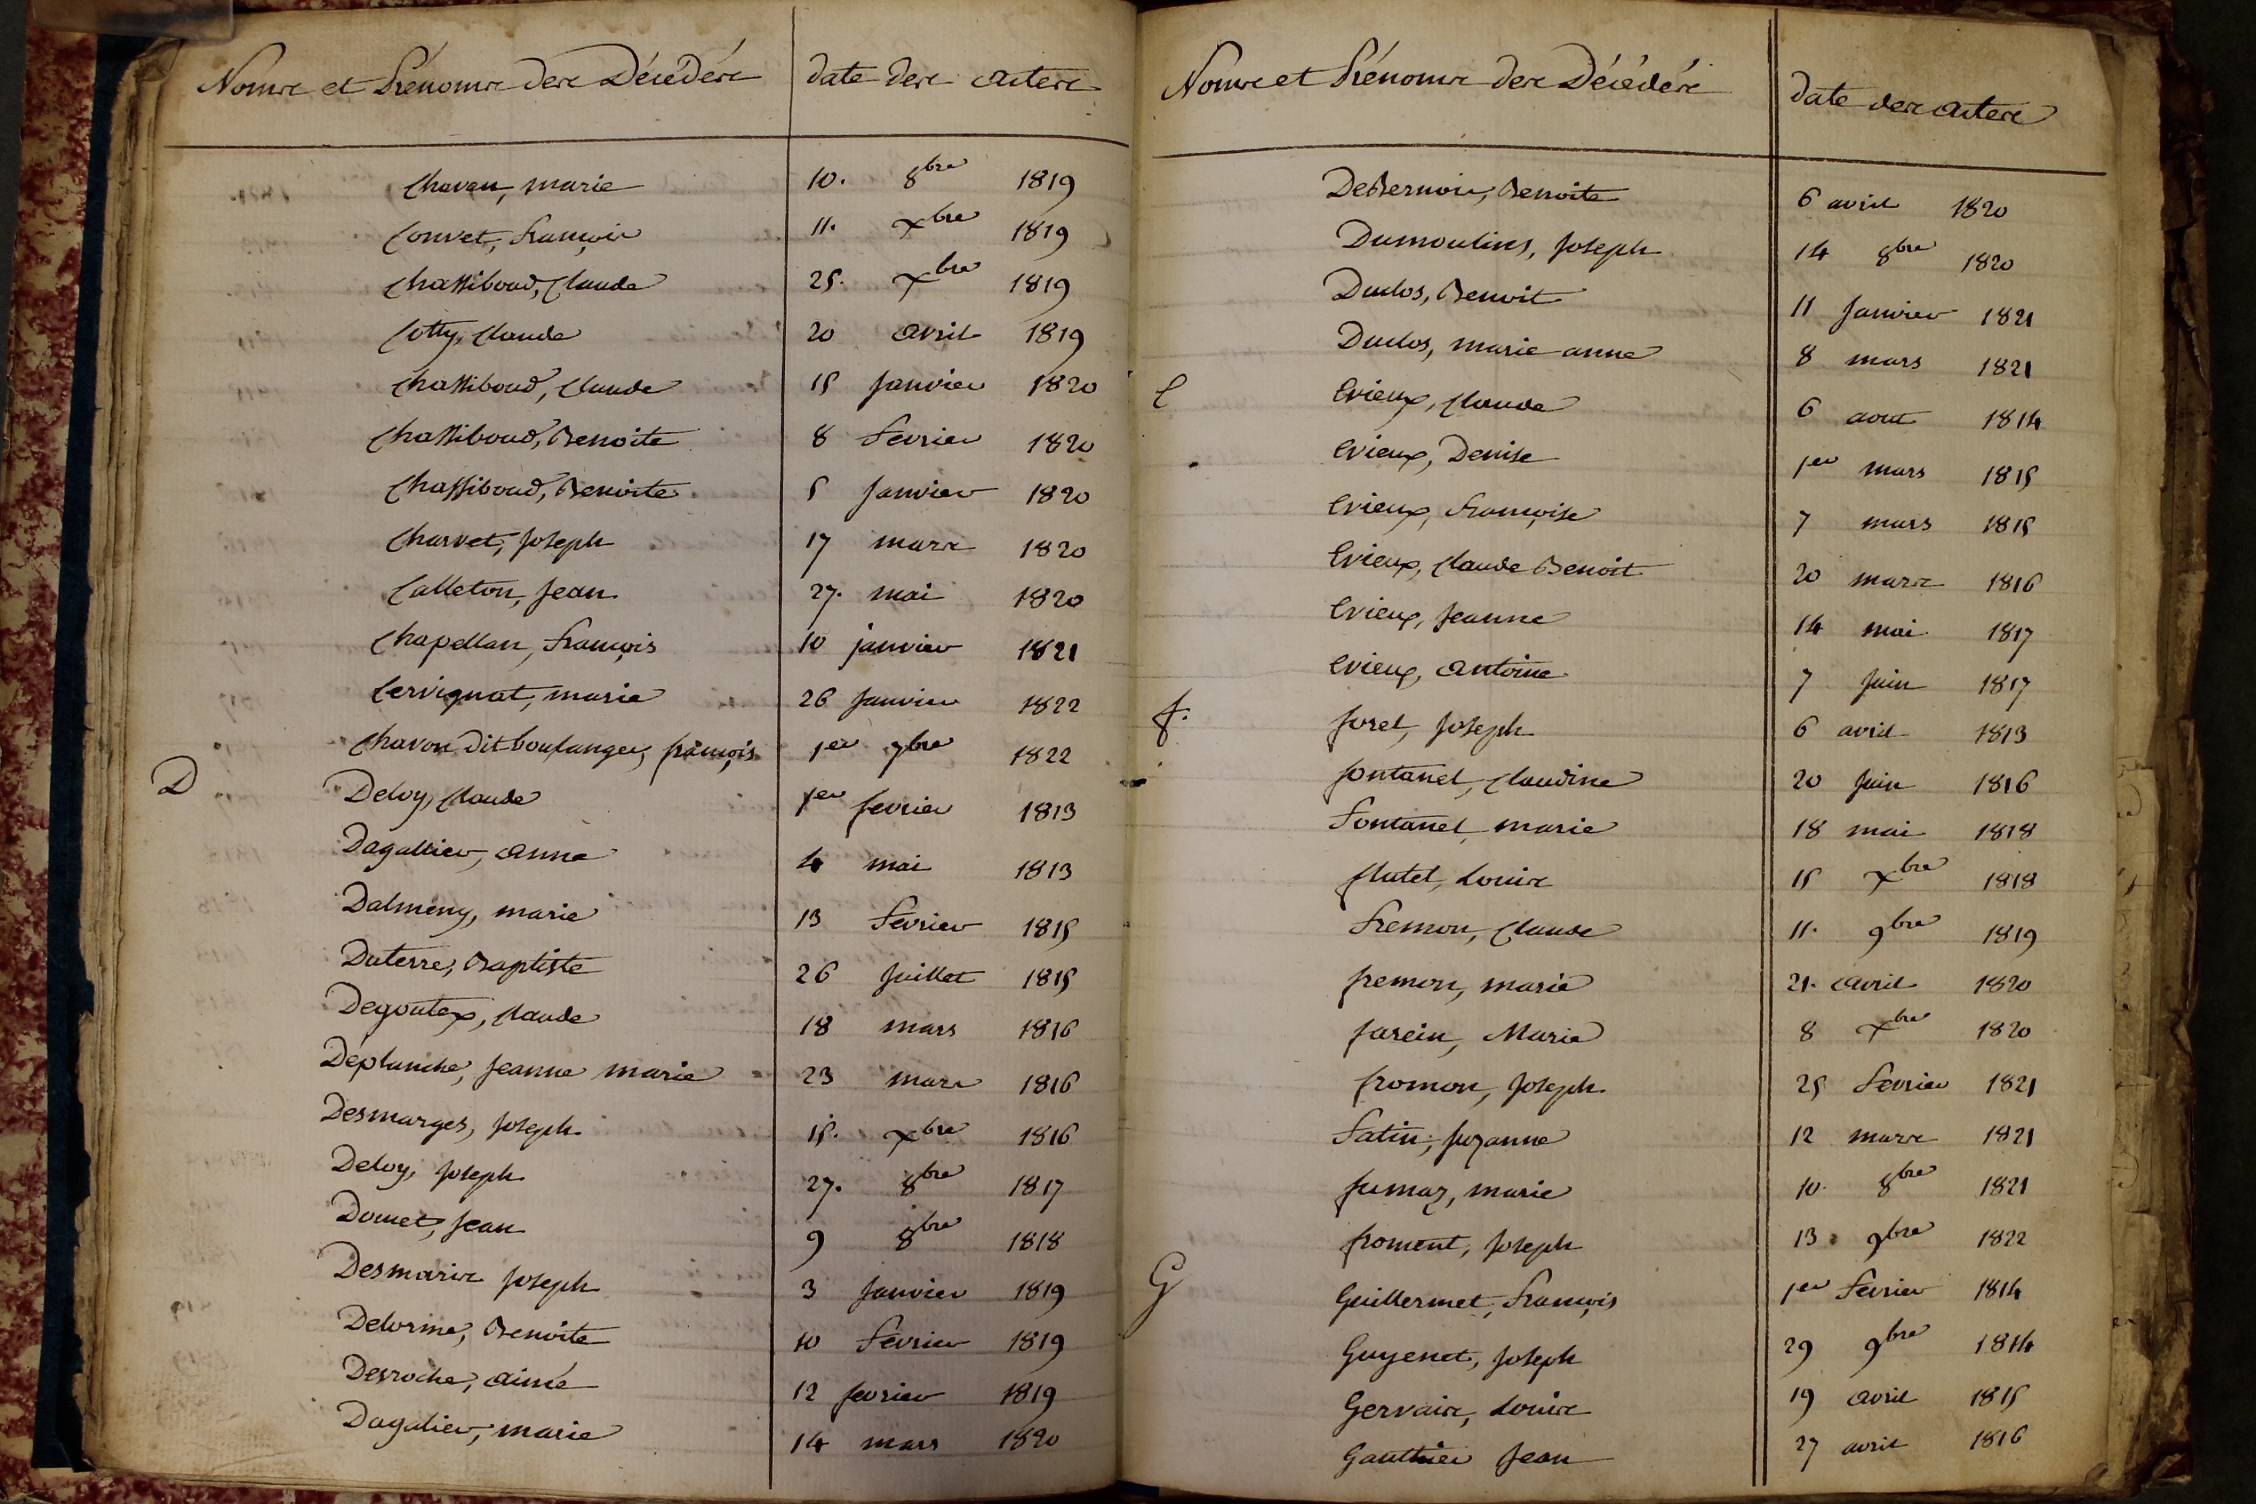 Noms et Prénoms des Décédés date des actes
Chavan, marie 10. 8bre 1819
Convet, François 11. Xbre 1819
Chassiboud, Claude 25. Xbre 1819
Cotty, Claude 20 avril 1819
Chassiboud, Claude 15 Janvier 1820
Chassiboud, Benoite 8 Fevrier 1820
Chassiboud, Benoite 5 Janvier 1820
Charvet, Joseph 17 mars 1820
Calleton, Jean 27. mai 1820
Chapellan, François 10 janvier 1821
Cervignat, marie 26 Janvier 1822
Chavon dit boulanger, françois 1er 7bre 1822
D Deloy, Claude 1er fevrier 1813
Dagallier, anne 4 mai 1813
Dalmeny, marie 13 Fevrier 1815
Duterre, Baptiste 26 Juillet 1815
Degoutex, Claude 18 mars 1816
Deplanche, Jeanne marie 23 mars 1816
Desmarges, Joseph 15. Xbre 1816
Deloy, Joseph 27. 8bre 1817
Domet, Jean 9 8bre 1818
Desmaris Joseph 3 Janvier 1819
Delorme, Benoite 10 Fevrier 1819
Desroche, aimé 12 fevrier 1819
Dagalier, marie 14 mars 1820
Noms et Prénoms des Décédés date des actes
DeBernoix, Benoite 6 avril 1820
Dumoulins, Joseph 14 8bre 1820
Duclos, Benoit 11 Janvier 1821
Duclos, marie anne 8 mars 1821
E Evieux, Claude 6 aout 1814
Evieux, Denise 1er mars 1815
Evieux, Françoise 7 mars 1815
Evieux, Claude Benoit 20 mars 1816
Evieux, Jeanne 14 mai 1817
Evieux, antoine 7 Juin 1817
f. foret, Joseph 6 avril 1813
fontanel, Claudine 20 Juin 1816
Fontanel, marie 18 mai 1818
flutet, Louis 15 Xbre 1818
Fremon, Claude 11. 9bre 1819
fremon, marie 21. avril 1820
farein, Marie 8 Xbre 1820
fromon, Joseph 25 Fevrier 1821
Fatin, Suzanne 12 mars 1821
fumaz, marie 10. 8bre 1821
froment, Joseph 13 9bre 1822
G Guillermet, François 1er Fevrier 1814
Guyenet, Joseph 29 9bre 1814
Gervais, Louis 19 avril 1815
Gauthier Jean 27 avril 1816